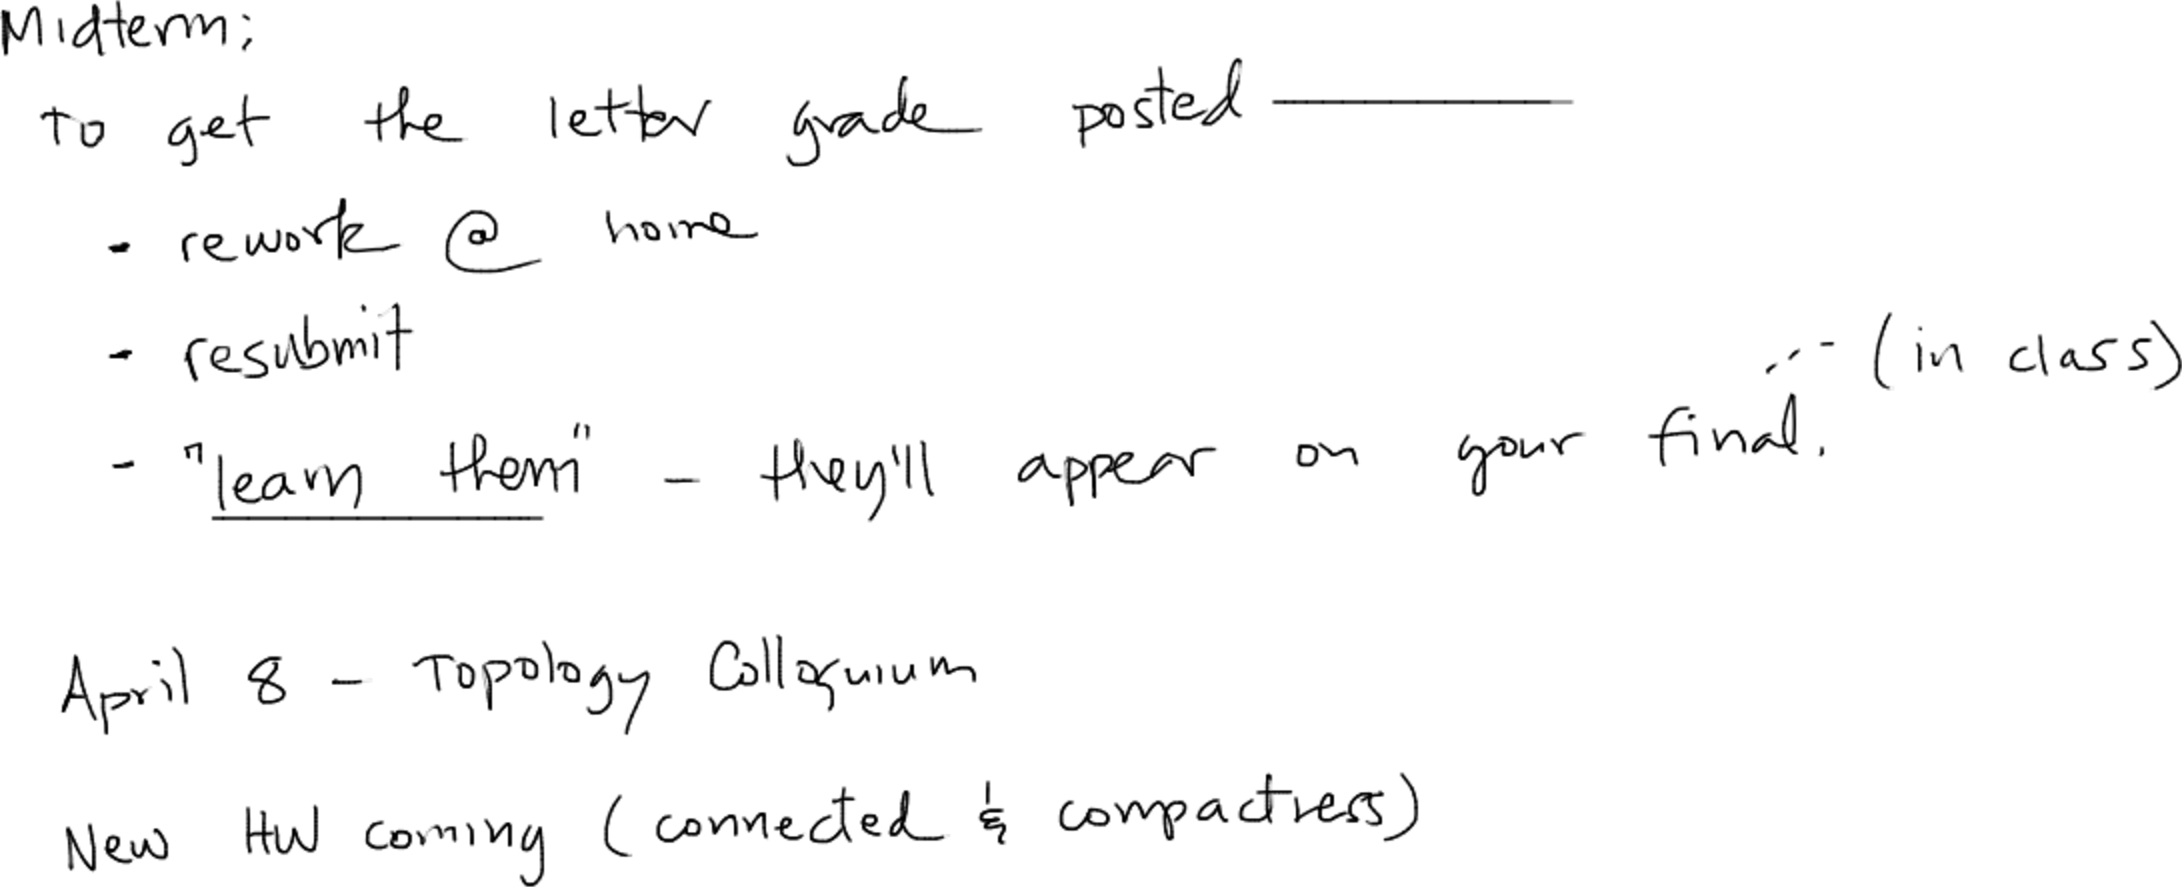 Midterm:
To get the letter grade posted —
- rework @ home
- resubmit
- "learn them" - they'll appear on your final. -- (in class)
April 8 - Topology Colloquium
New HW coming (connected & compactness)